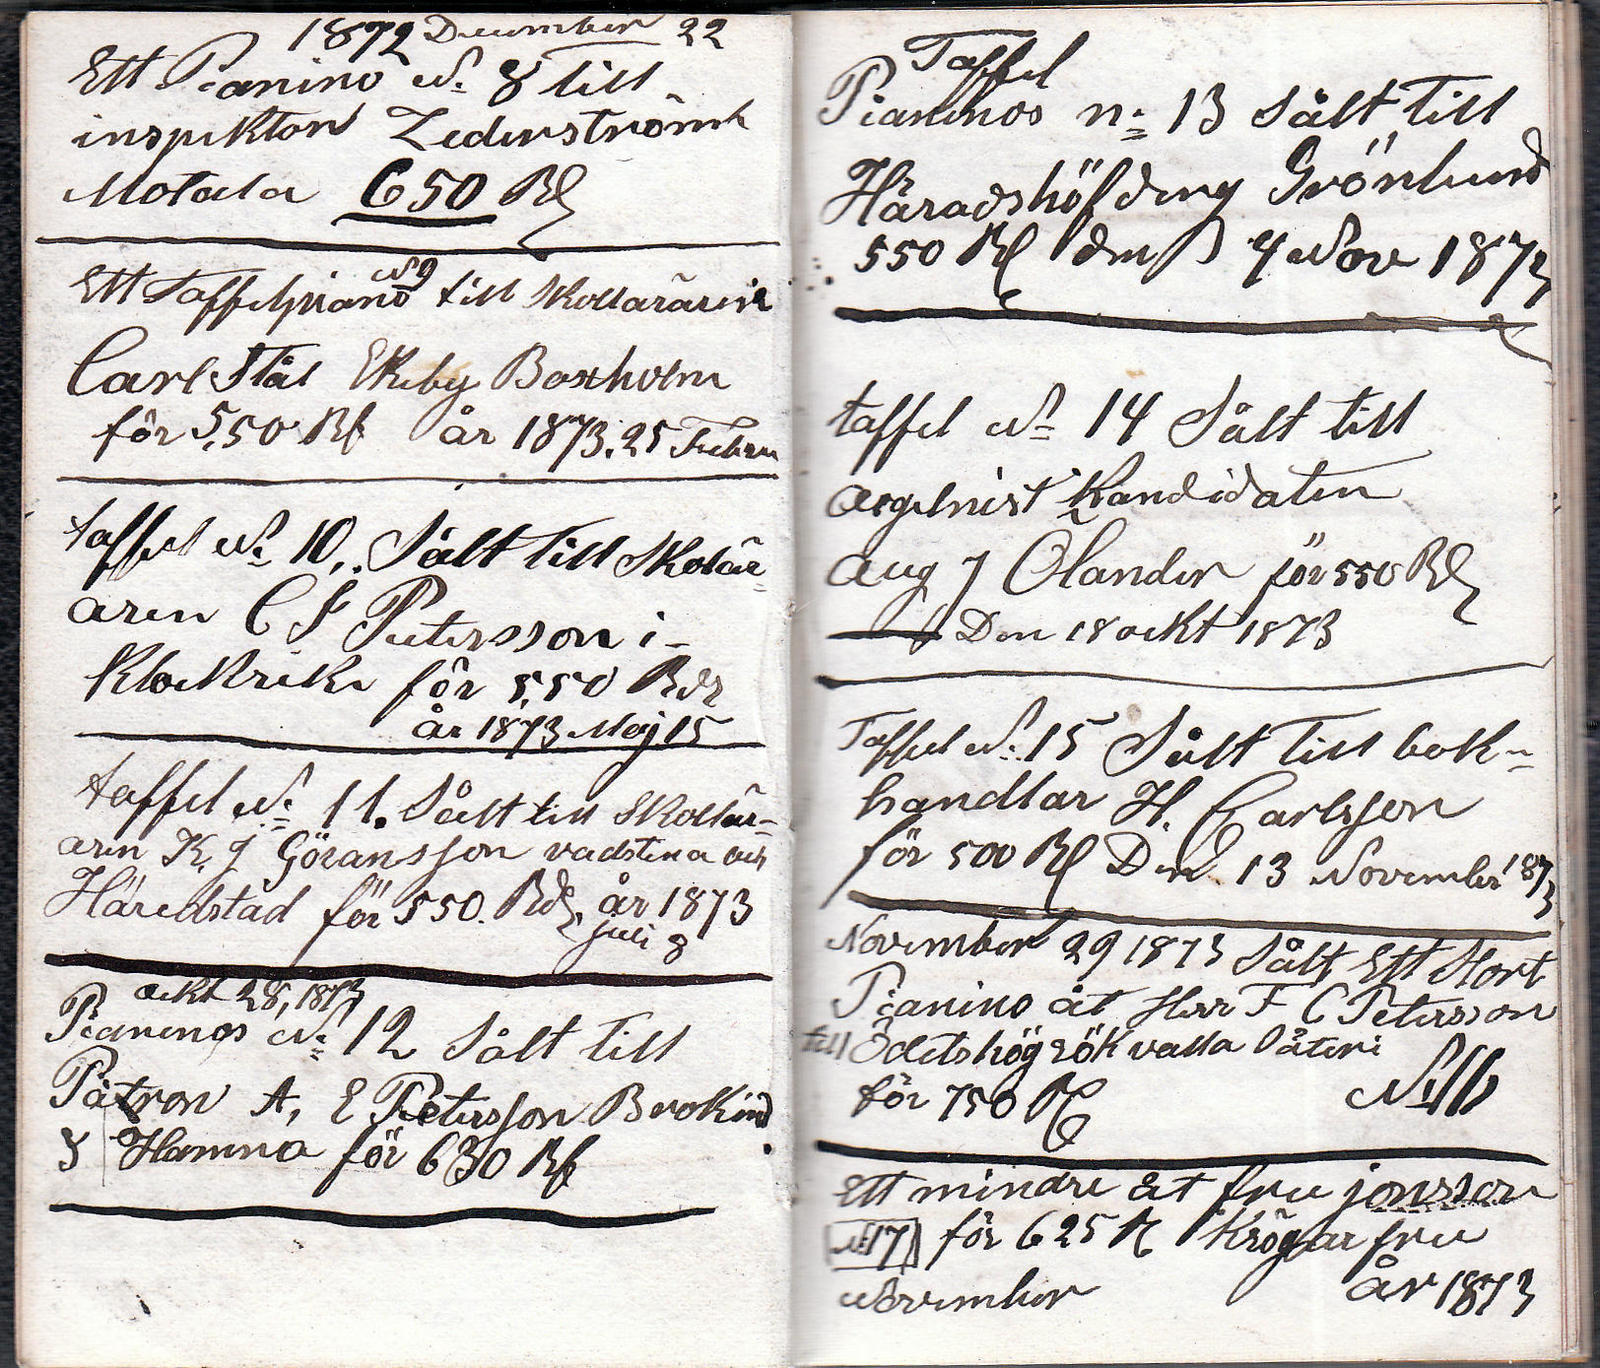 1872 December 22
Ett Pianino N. 8 till
inspektor Zederström
Motala 650 Rd
Ett Taffelpiano N 9 till Skollärären
Carl Stål Ekeby Boxholm
för 550 Rd år 1873. 25 Febru
taffel N. 10, Sålt till Skolär-
aren C F Petersson i
Klockrike för 550 Rdr
år 1873 Maj 15
taffel N. 11. Sålt till Skollär-
aren K. J Göransson vadstena och
Häredstad för 550. Rd. år 1873
juli 8
ockt 28, 1873
Pianinos N. 12 Sålt till
Patron A, E Petersson Berokind
Hamna för 630 Rd
Taffel
Pianinos n. 13 Sålt till
Häradshöfding Grönlund
550 Rd den 4 Nov 1873
taffel N. 14 Sålt till
orgelnist Kandidaten
Aug J Olander för 550 Rd
Den 18 ockt 1873
Taffel N. 15 Sålt till bok-
handlar H. Carlsson
för 500 Rd Den 13 November 1873
November 29 1873 Sålt Ett Stort
Pianino åt Herr F C Petersson
till Ödetshög rök valla Säteri
för 750 Rd N. 16
Ett mindre åt fru jonsson
N. 17 för 625 R Krögar fru
November år 1873